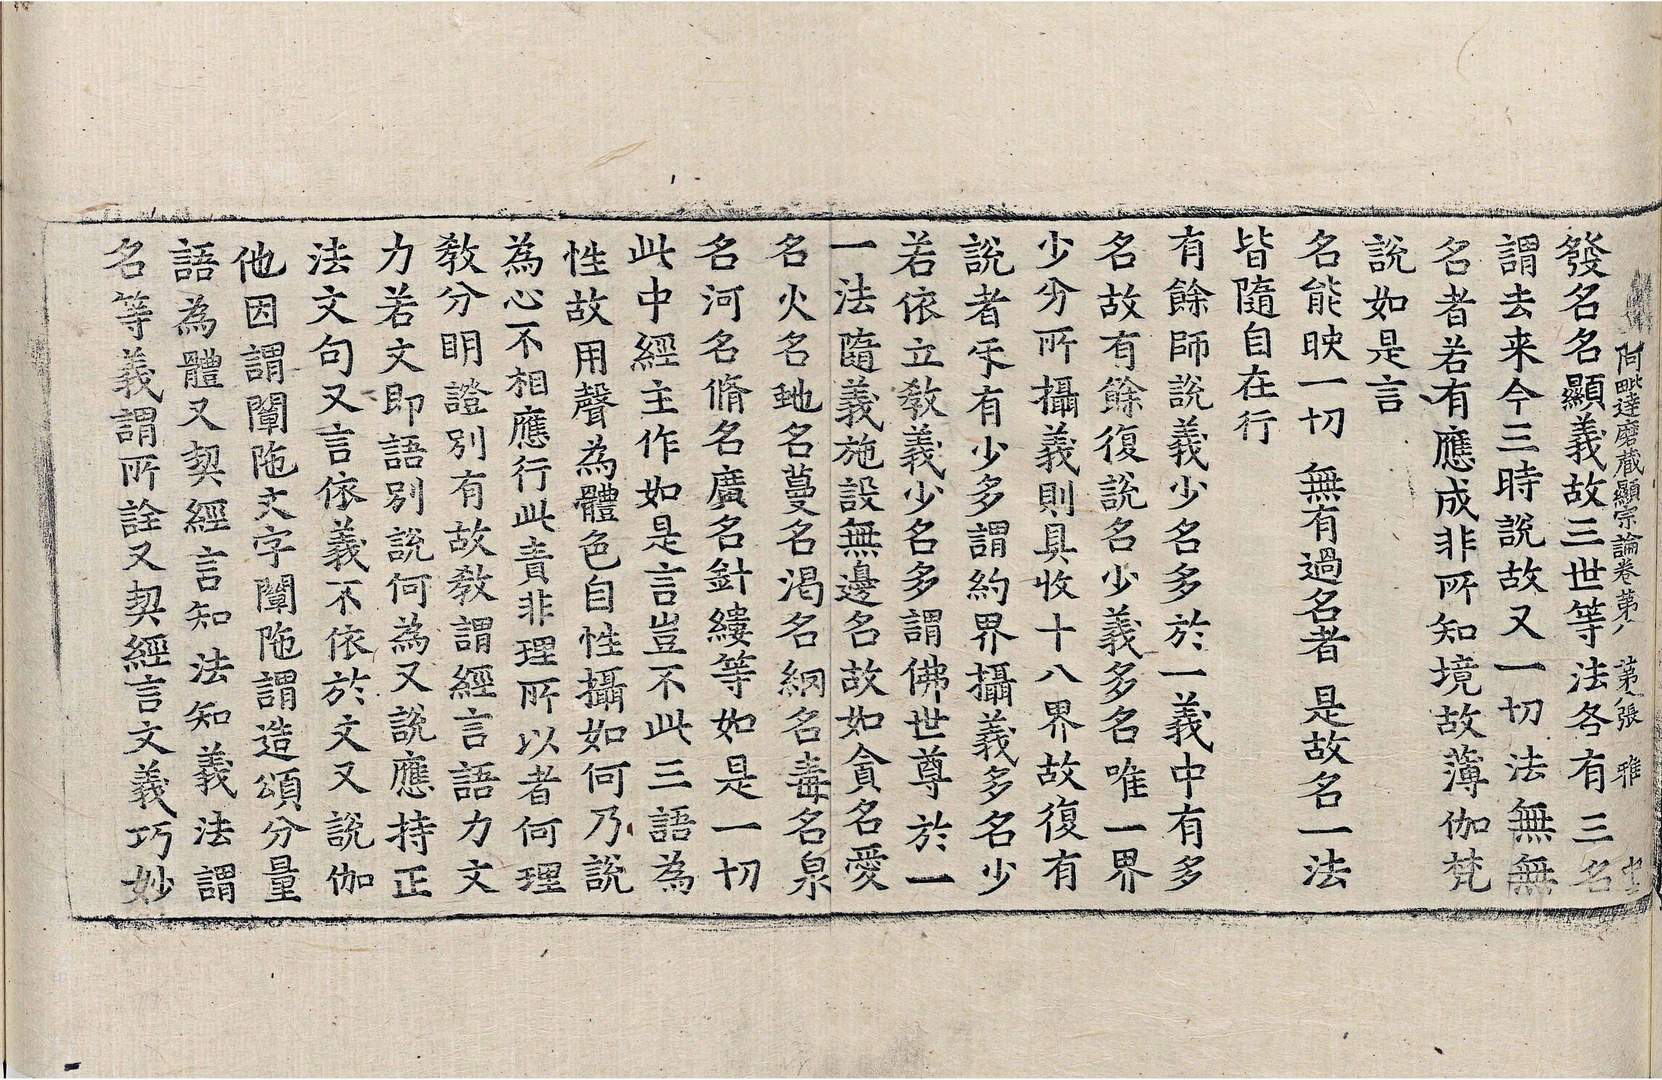 阿毗達磨藏顯宗論卷第八 第 張 雅
發名名顯義故三世等法各有三名
謂去来今三時說故又一切法無無
名者若有應成非所知境故薄伽梵
說如是言
名能映一切 無有過名者 是故名一法
皆隨自在行
有餘師說義少名多於一義中有多
名故有餘復說名少義多名唯一界
少分所攝義則具收十八界故復有
說者㸦有少多謂約界攝義多名少
若依立教義少名多謂佛世尊於一
一法隨義施設無邊名故如貪名愛
名火名虵名蔓名渴名網名毒名泉
名河名脩名廣名針縷等如是一切
此中經主作如是言豈不此三語為
性故用聲為體色自性攝如何乃說
為心不相應行此責非理所以者何理
教分明證別有故教謂經言語力文
力若文即語別說何為又說應持正
法文句又言依義不依於文又說伽
他因謂闡陁文字闡陁謂造頌分量
語為體又契經言知法知義法謂
名等義謂所詮又契經言文義巧妙